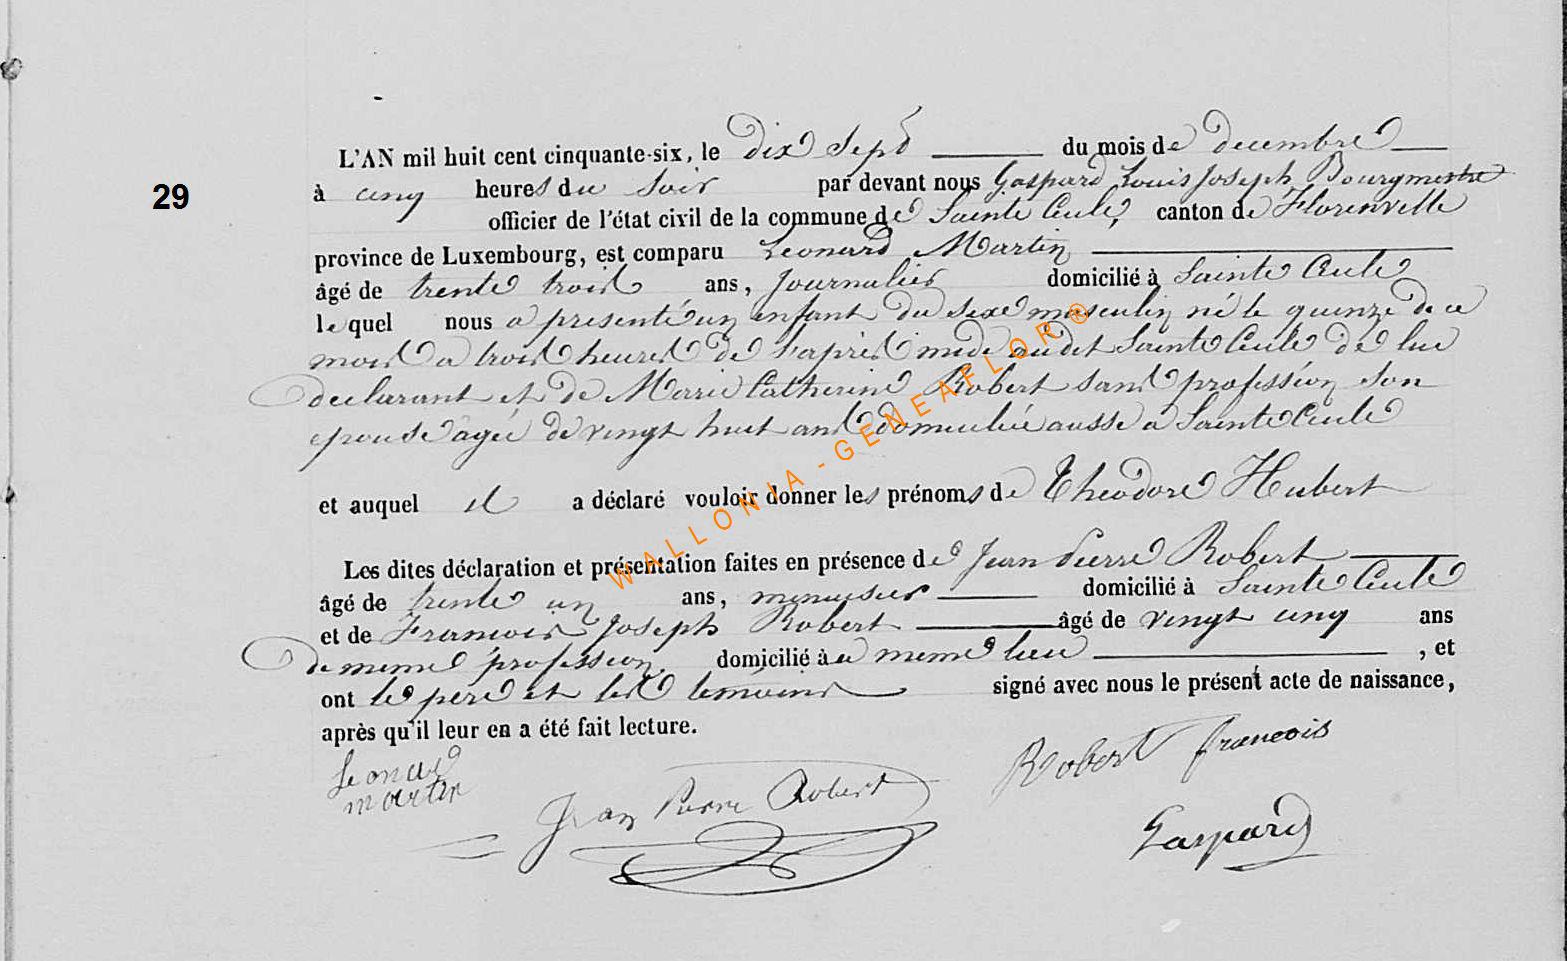 L'AN mil huit cent cinquante-six, le dix sept du mois de decembre
29
à cinq heures du soir par devant nous Gaspard Louis Joseph Bourgmestre
officier de l'état civil de la commune de Sainte Cecile, canton de Florenville
province de Luxembourg, est comparu Leonard Martin
âgé de trente trois ans, journalier domicilié à Sainte Cecile
lequel nous a presenté un enfant du sexe masculin né le quinze de ce
mois a trois heures de l'après midi audit Sainte Cecile de lui
declarant et de Marie Catherine Robert sans profession son
epouse agée de vingt huit ans domiciliée aussi a Sainte Cecile
et auquel il a déclaré vouloir donner les prénoms de Theodore Hubert
Les dites déclaration et présentation faites en présence de Jean Pierre Robert
âgé de trente un ans, menuisier domicilié à Sainte Cecile
et de Francois Joseph Robert âgé de vingt cinq ans
de meme profession, domicilié à ce meme lieu , et
ont le pere et les temoins signé avec nous le présent acte de naissance,
après qu'il leur en a été fait lecture.
Leonard
martin
Jean Pierre Robert
Robert francois
Gaspard
WALLONIA - GENEAFLOR®